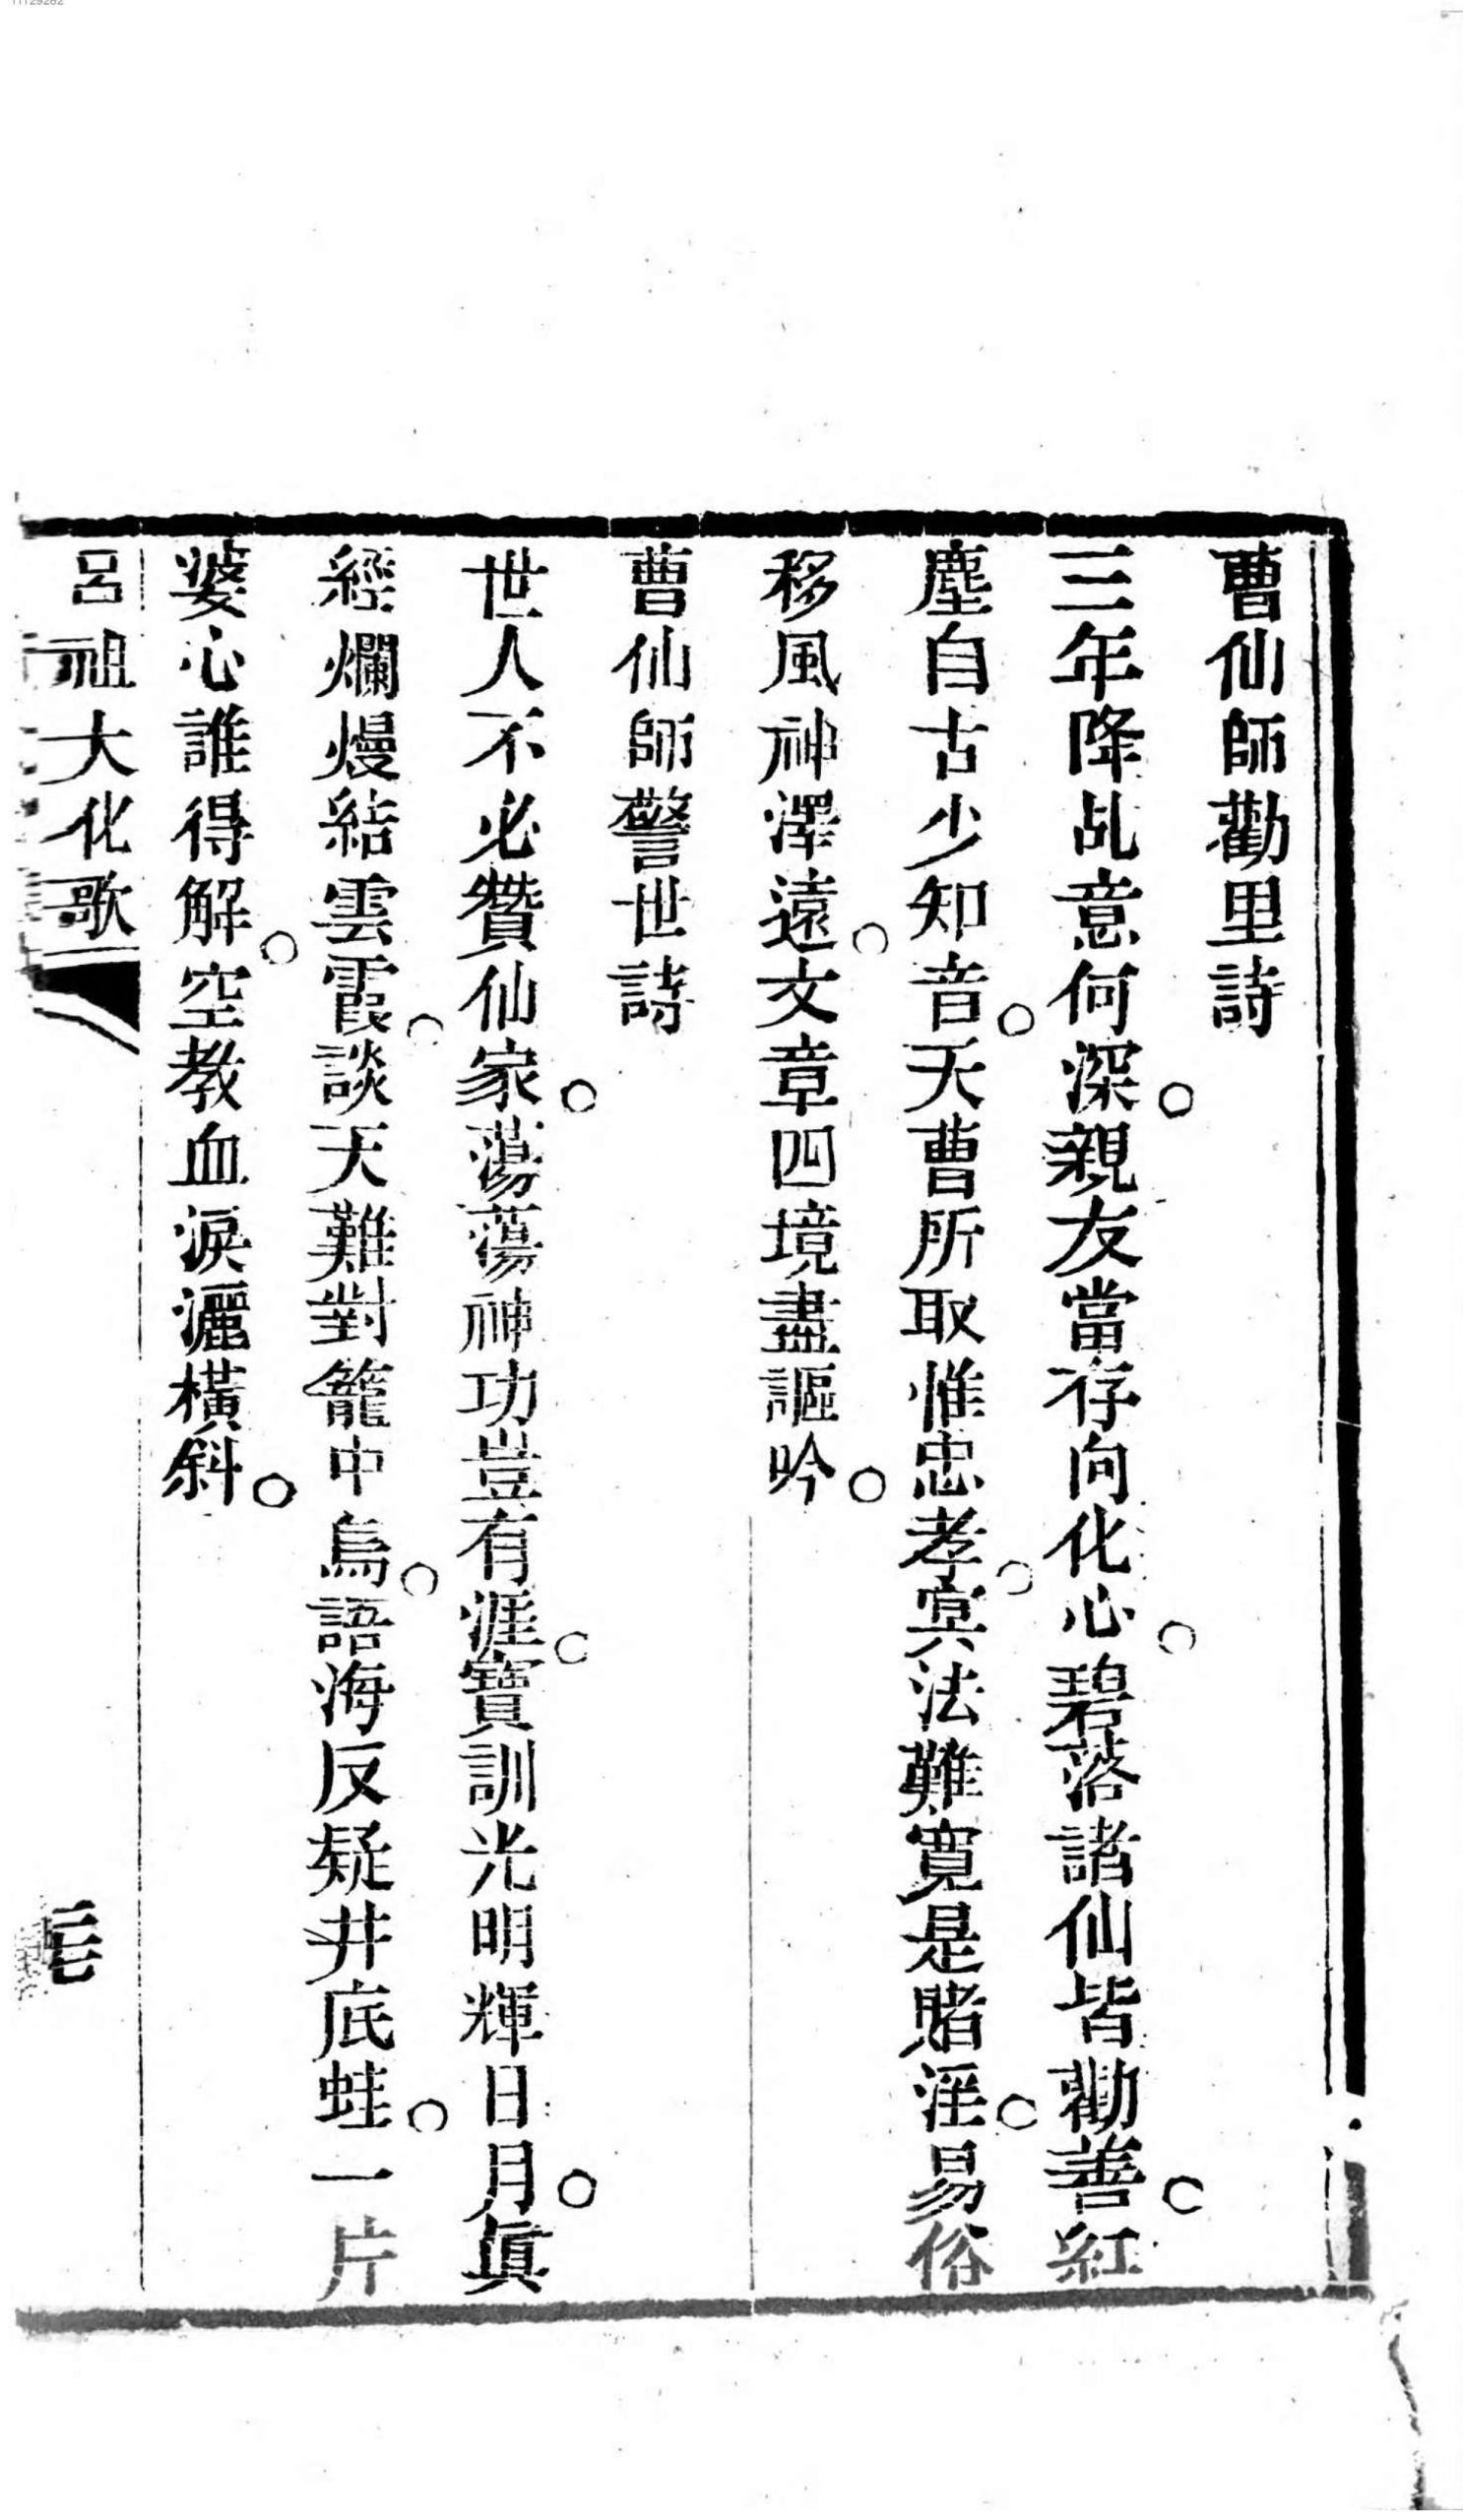 曹仙師勸里詩
三年降乩意何深○親友當存向化心○碧落諸仙皆勸善○紅
塵自古少知音○天曹所取惟忠孝○冥法難寬是賭淫○易俗
移風神澤遠○文章四境盡謳吟○
曹仙師警世詩
世人不必贊仙家○蕩蕩神功豈有涯○寶訓光明輝日月○眞
經爛熳結雲霞○談天難對籠中鳥○語海反疑井底蛙○一片
婆心誰得解○空教血淚灑橫斜○
呂祖大化歌